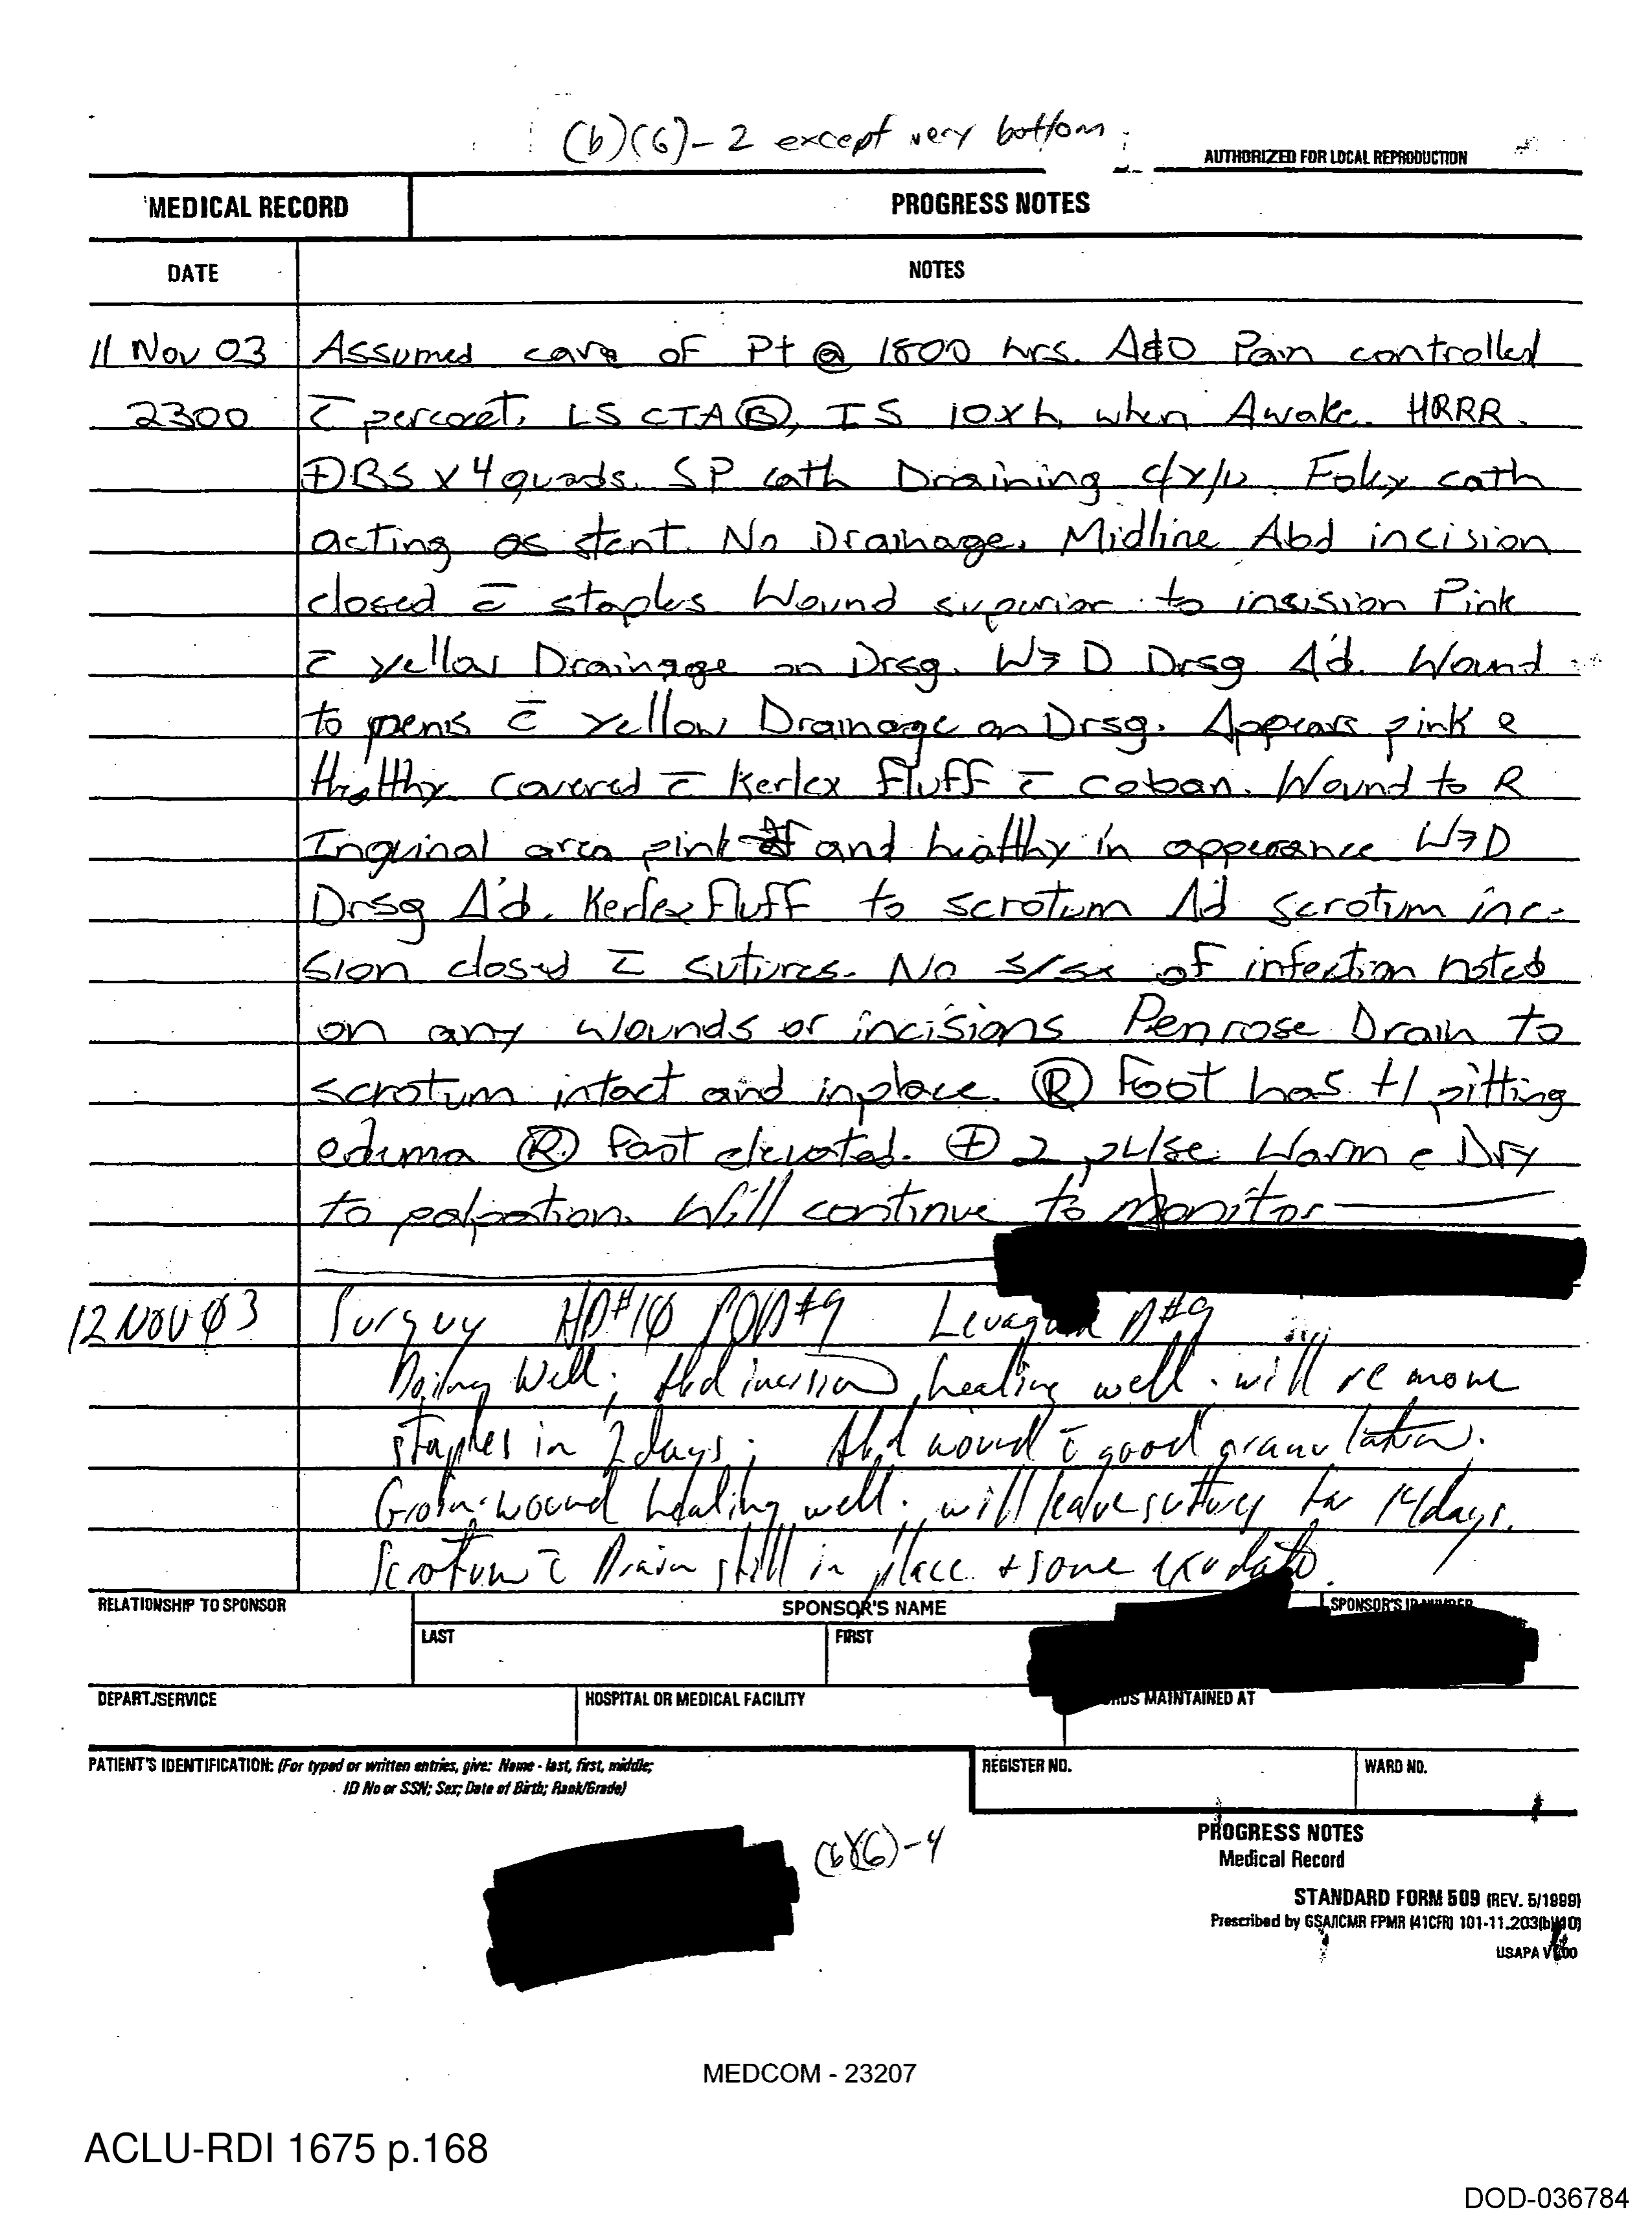 (b)(6)-2 except very bottom
AUTHORIZED FOR LOCAL REPRODUCTION
MEDICAL RECORD
PROGRESS NOTES
DATE
NOTES
11 Nov 03 Assumed care of Pt @ 1800 hrs. A&O Pain controlled
2300 c̄ percocet. LS CTA Ⓑ, IS 10xh when Awake. HRRR.
⊕BS x 4 quads. SP cath Draining c/y/u. Foley cath
acting as stent. No Drainage. Midline Abd incision
closed c̄ staples. Wound superior to insision Pink
c̄ yellow Drainage on Drsg. W→D Drsg Δ'd. Wound
to penis c̄ Yellow Drainage on Drsg. Appears pink &
Healthy covered c̄ Kerlex fluff c̄ coban. Wound to R
Inguinal area pink and healthy in apperance W→D
Drsg Δ'd. Kerlex Fluff to scrotum Δ'd scrotum inc-
sion closed c̄ sutures. No s/sx of infection noted
on any wounds or incisions Penrose Drain to
scrotum intact and inplace. Ⓡ Foot has +1 pitting
edema Ⓡ foot elevated. ⊕ 2 pulse Warm & Dry
to palpation. Will continue to monitor
12 NOV 03 Surgery HD#10 POD#9 D#9
Doing Well; Abd incision healing well. will remove
staples in 2 days; Abd wound c̄ good granulation.
Groin wound healing well. will leave sutures for 14 days.
Scrotum c̄ Drain still in place + some exudate.
RELATIONSHIP TO SPONSOR
SPONSOR'S NAME
LAST
FIRST
DEPART./SERVICE
HOSPITAL OR MEDICAL FACILITY
MAINTAINED AT
PATIENT'S IDENTIFICATION: (For typed or written entries, give: Name - last, first, middle;
ID No or SSN; Sex; Date of Birth; Rank/Grade)
REGISTER NO.
WARD NO.
(b)(6)-4
PROGRESS NOTES
Medical Record
STANDARD FORM 509 (REV. 5/1999)
Prescribed by GSA/ICMR FPMR (41CFR) 101-11.203(b)(10)
USAPA
MEDCOM - 23207
ACLU-RDI 1675 p.168
DOD-036784